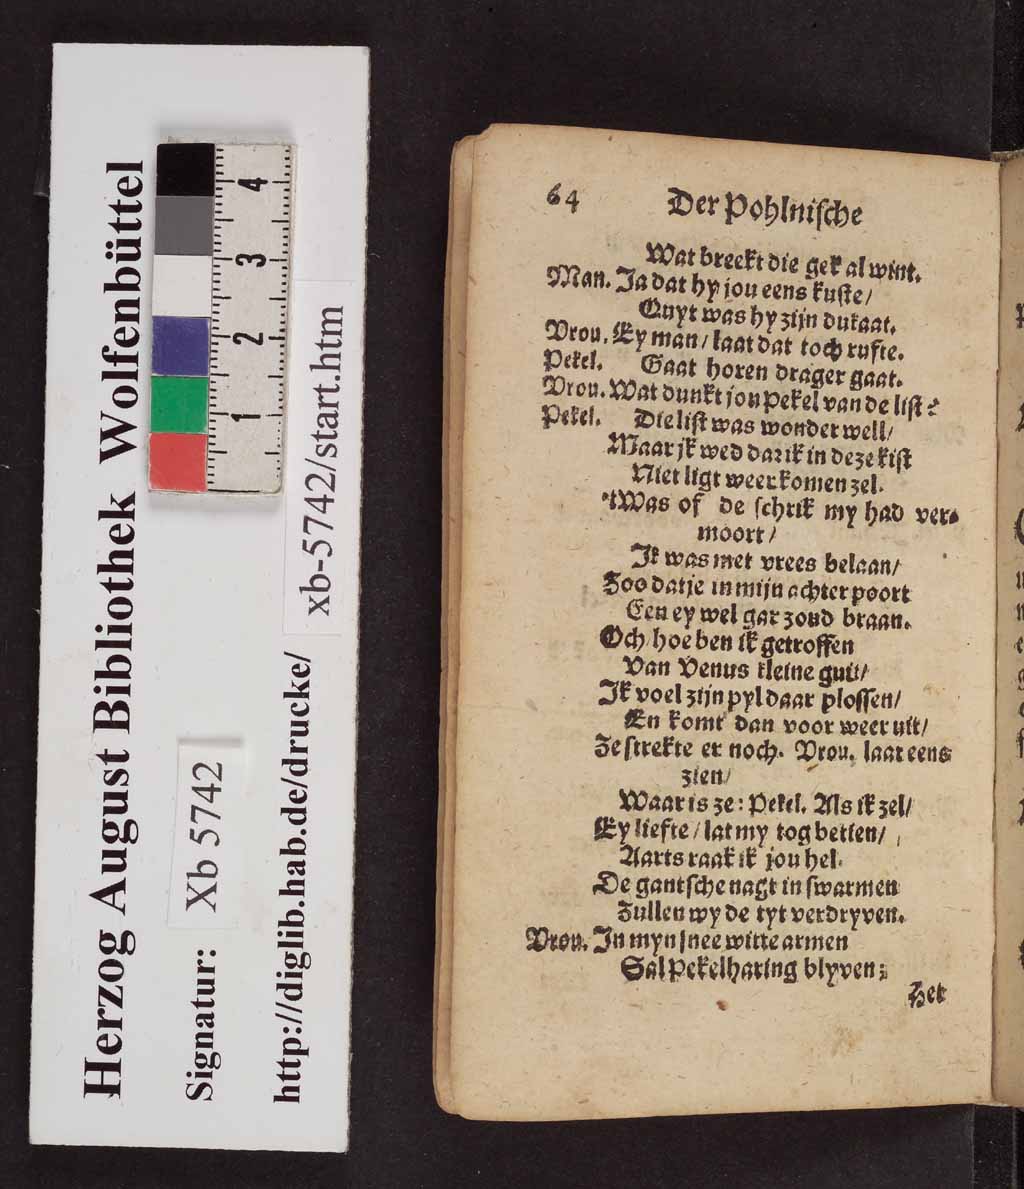 Herzog August Bibliothek Wolfenbüttel
Signatur: Xb 5742
http://diglib.hab.de/drucke/ xb-5742/start.htm
1 2 3 4
64 Der Pohlnische
Wat breekt die gek al wint.
Man. Ja dat hy jou eens kuste/
Quyt was hy zijn dukaat.
Vrou. Ey man/ laat dat toch ruste.
Pekel. Gaat horen drager gaat.
Vrou. Wat dunkt jou Pekel van de list?
Pekel. Die list was wonder well/
Maar jk wed dat ik in deze kist
Niet ligt weer komen zel.
'tWas of de schrik my had ver-
moort/
Jk was met vrees belaan/
Zoo datje in mijn achter poort
Een ey wel gar zoud braan.
Och hoe ben ik getroffen
Van Venus kleine guit/
Jk voel zijn pyl daar plossen/
En komt dan voor weer uit/
Ze strekte er noch. Vrou. laat eens
zien/
Waar is ze: Pekel. Als ik zel/
Ey liefte/ lat my tog betien/
Aarts raak ik jou hel.
De gantsche nagt in swarmen
Zullen wy de tyt verdryven.
Vrou. Jn myn snee witte armen
Sal Pekelharing blyven;
Het